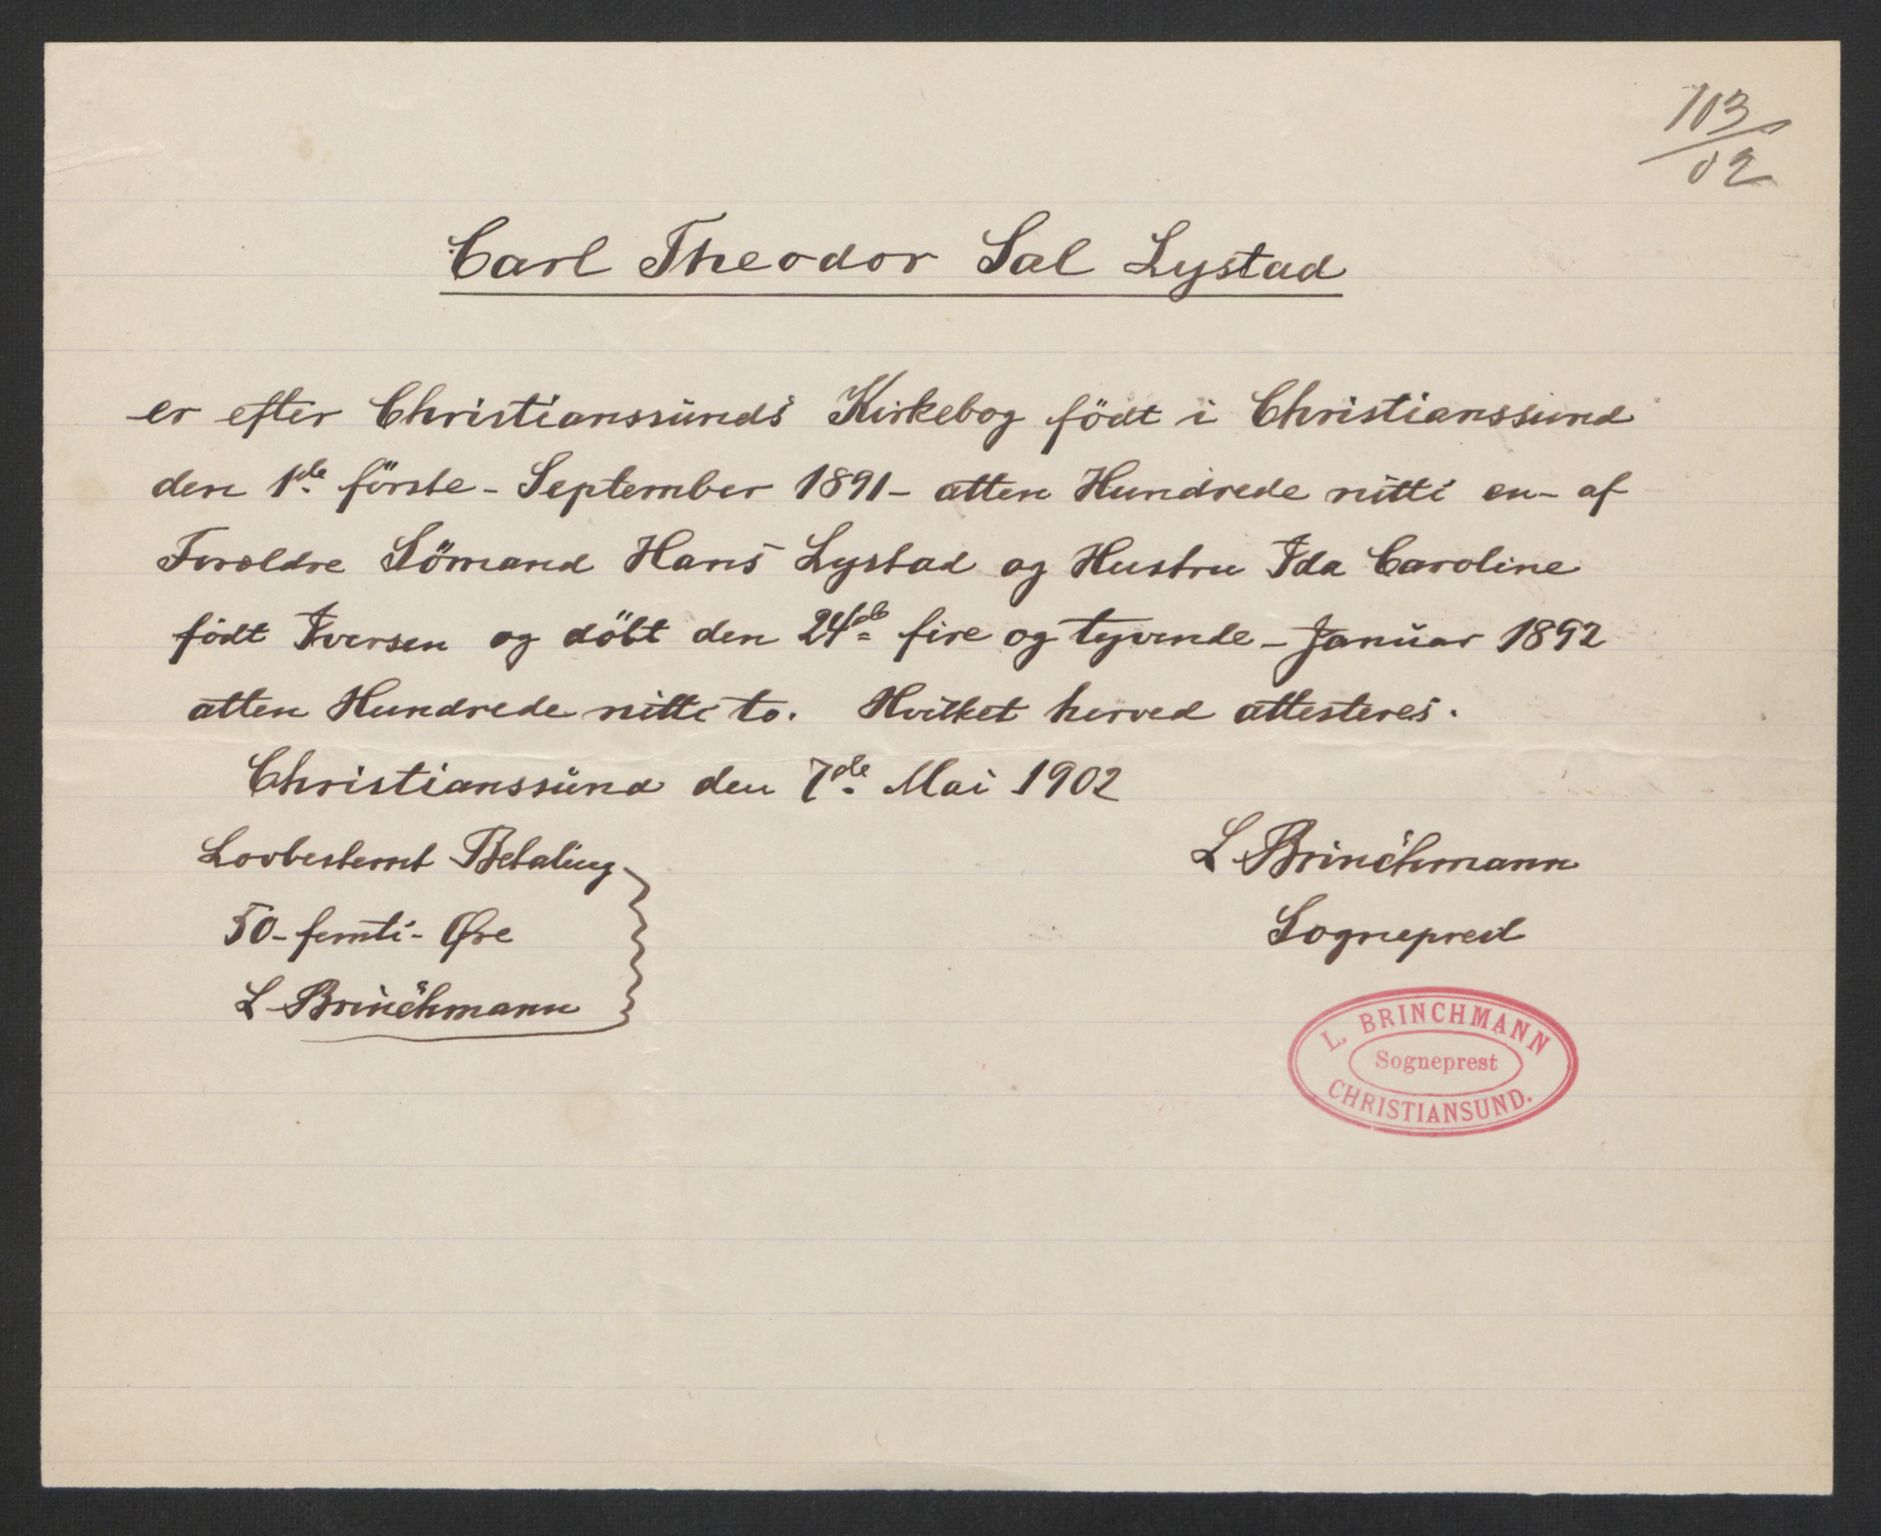 103/02
Carl Theodor Sal Lystad
er efter Christianssunds Kirkebog födt i Christianssund
den 1ste förste - September 1891 - atten Hundrede nitti en - af
Forældre Sömand Hans Lystad og Hustru Ida Caroline
födt Iversen og döbt den 24de fire og tyvende - Januar 1892
atten Hundrede nitti to. Hvilket herved attesteres.
Christianssund den 7de Mai 1902
Lovbestemt Betaling
50 - femti - Øre
L Brinchmann
L Brinchmann
Sogneprest
L. BRINCHMANN
Sogneprest
CHRISTIANSUND.